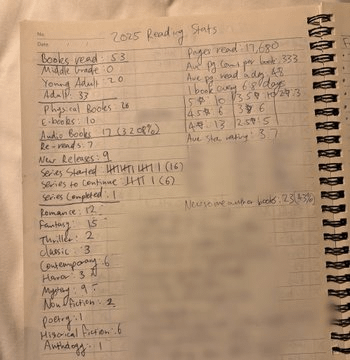 No.
Date
2025 Reading Stats
Books read: 53
Middle Grade: 0
Young Adult: 20
Adult: 33
Physical Books: 26
E-books: 10
Audio Books 17 (32.08%)
Re-reads: 7
New Releases: 9
Series Started (16)
Series to Continue (6)
Series Completed: 1
Romance: 12
Fantasy: 15
Thriller: 2
Classic: 3
Contemporary: 6
Horror: 3
Mystery: 9
Non-fiction: 2
Poetry: 1
Historical Fiction: 6
Anthology: 1
Pages read: 17,680
Ave pg count per book: 333
Ave pg read a day: 48
1 book every 6.8 days
Ave star rating: 3.7
author books: 23 (43%)